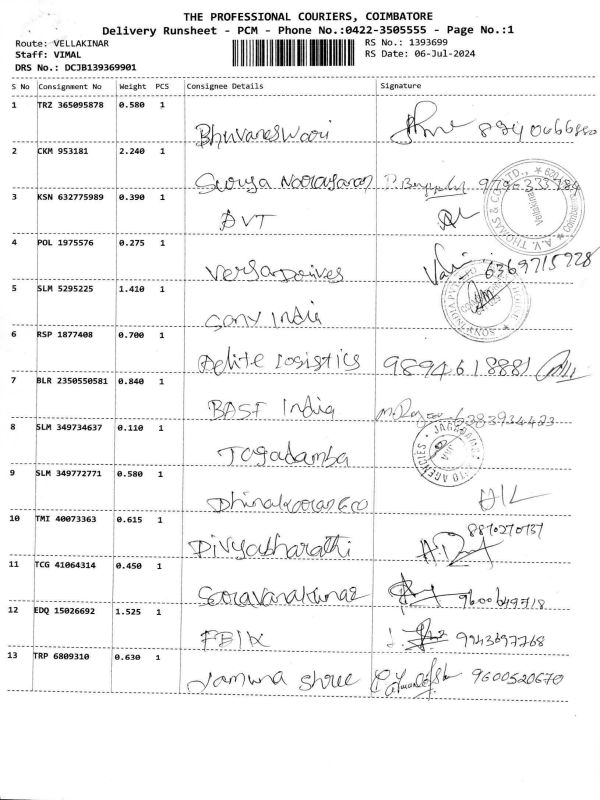 THE PROFESSIONAL COURIERS, COIMBATORE
Delivery Runsheet - PCM - Phone No.:0422-3505555 - Page No.:1
Route: VELLAKINAR RS No.: 1393699
Staff: VIMAL RS Date: 06-Jul-2024
DRS No.: DCJB139369901
S No Consignment No Weight PCS Consignee Details Signature
1 TRZ 365095878 0.580 1
Bhuvaneswari
2 CKM 953181 2.240 1
Surya Narayanan
3 KSN 632775989 0.390 1
AVT
A.V. THOMAS & CO. LTD.,
Vellakinar
4 POL 1975576 0.275 1
Versa Drives 6369715728
5 SLM 5295225 1.410 1
Sony India
6 RSP 1877408 0.700 1
Delite Logistics 9894618881
7 BLR 2350550581 0.840 1
BASF India 6383934423
8 SLM 349734637 0.110 1
Jagadamba
9 SLM 349772771 0.580 1
Dhinakaran
10 TMI 40073363 0.615 1
Divyabharathi
11 TCG 41064314 0.450 1
Saravanakumar 9600649718
12 EDQ 15026692 1.525 1
9943697768
13 TRP 6809310 0.630 1
Jamuna Shree 9600520670